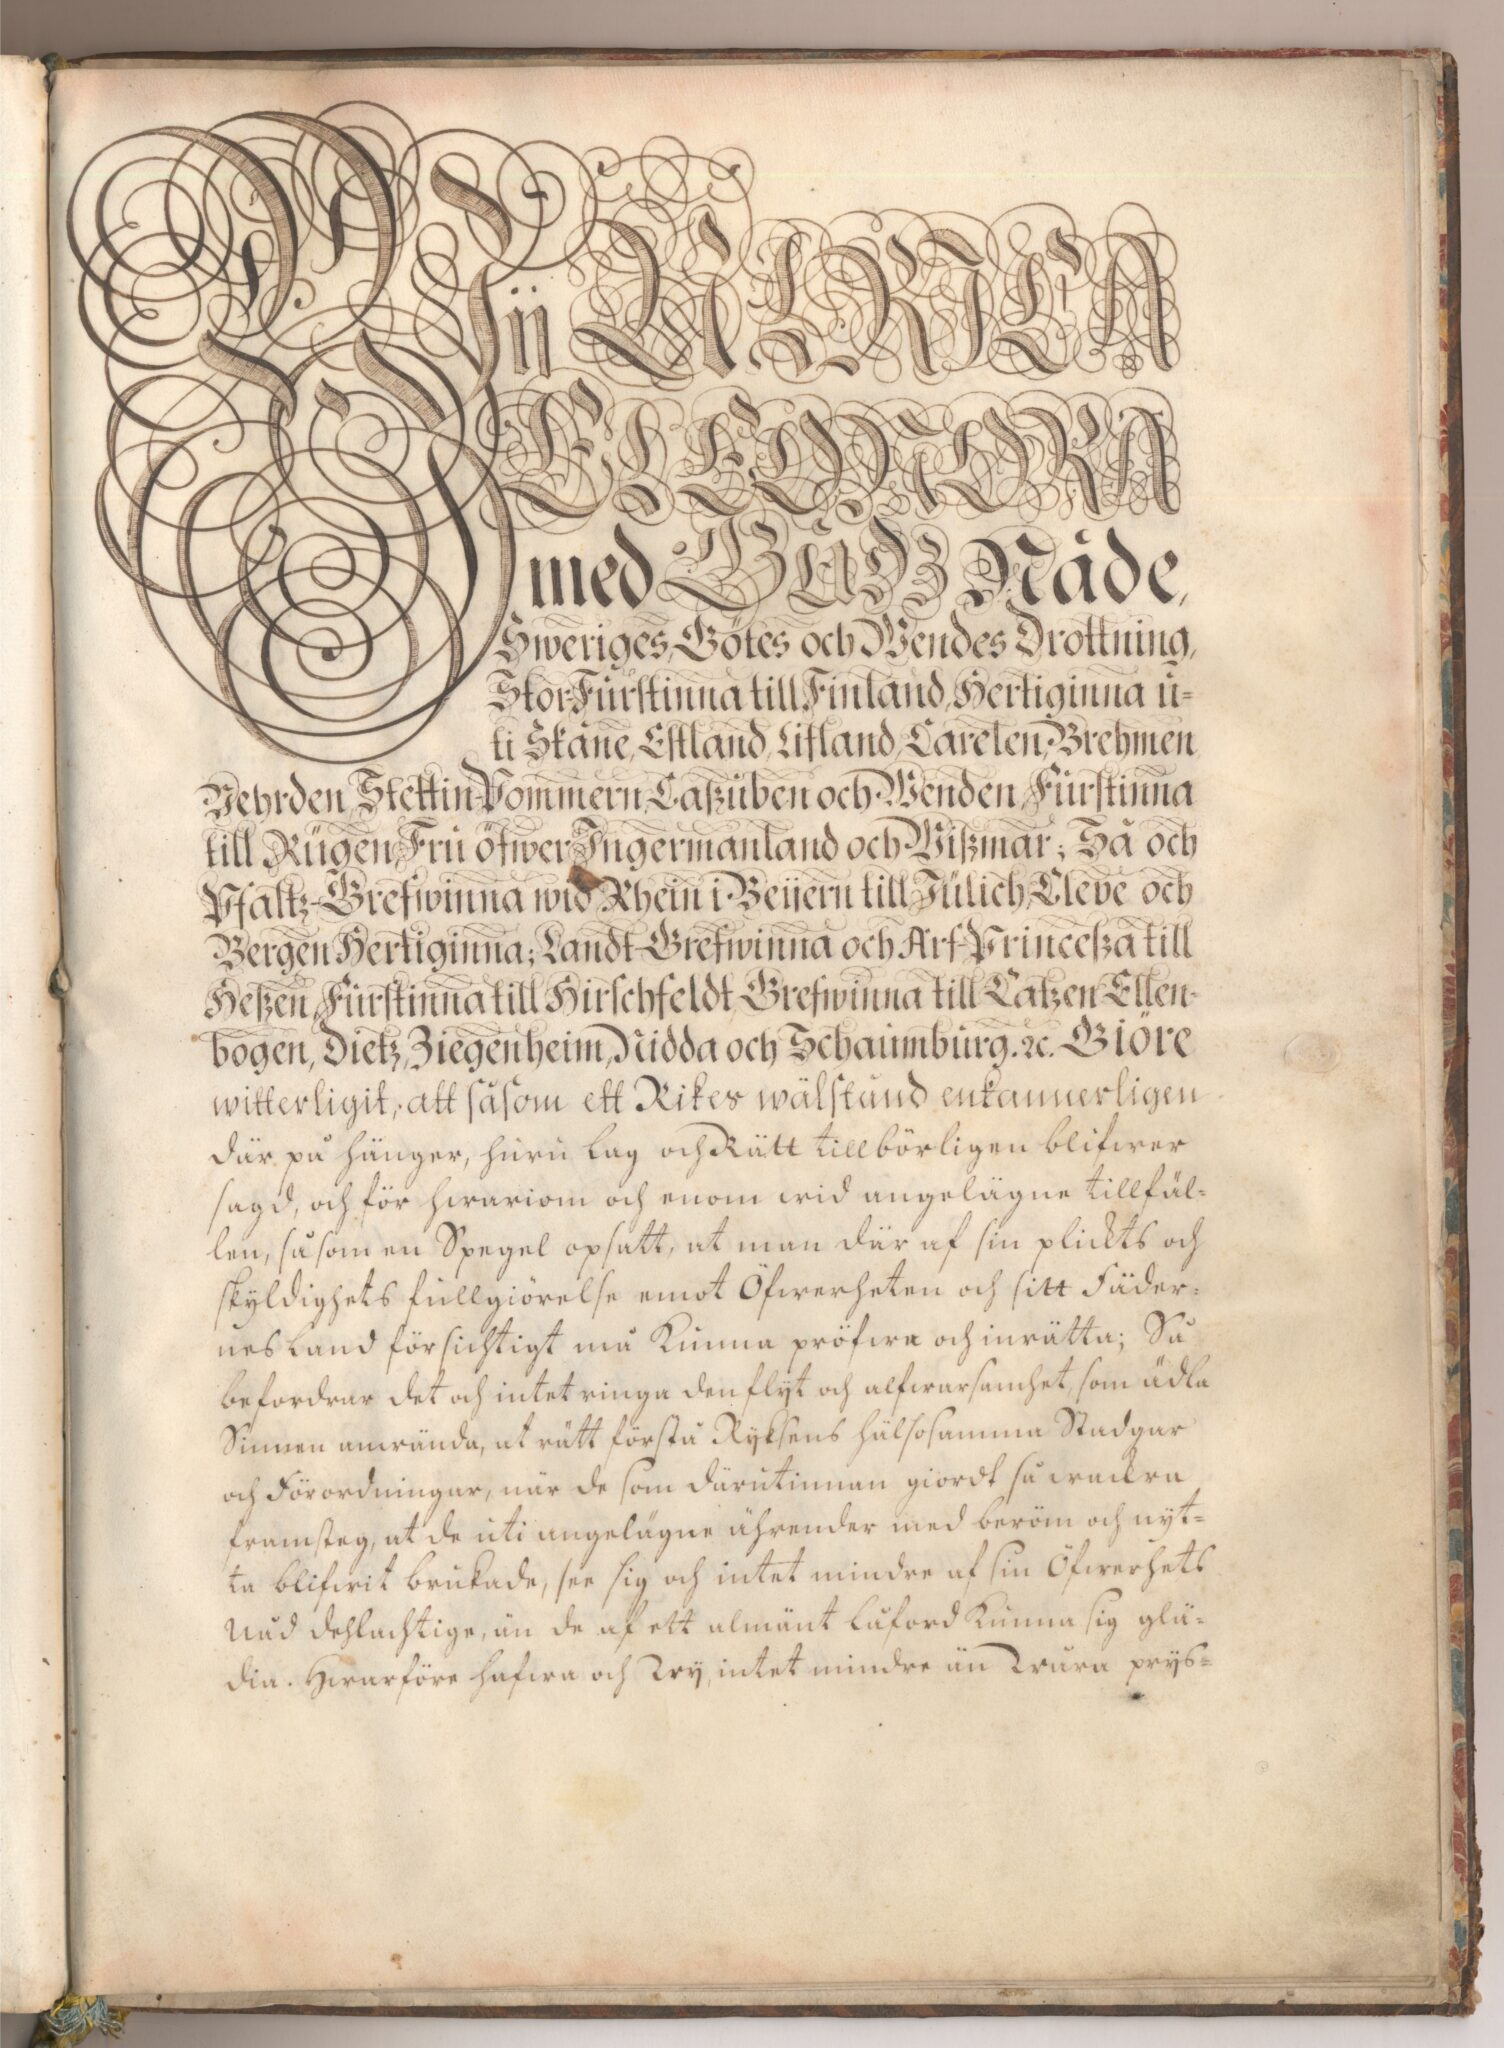 Wij ULRICA
ELEONORA
med GUDZ Nåde,
Sweriges, Götes och Wendes Drottning,
Stor-Fürstinna till Finland, Hertiginna u-
ti Skåne, Estland, Lifland, Carelen, Brehmen
Vehrden, Stettin-Pommern, Caßuben och Wenden, Fürstinna
till Rügen, Fru öfwer Ingermanland och Wißmar; Så och
Pfaltz-Grefwinna wid Rhein i Beijern till Jülich, Cleve och
Bergen Hertiginna; Landt-Grefwinna och Arf-Princeßa till
Heßen, Fürstinna till Hirschfeldt, Grefwinna till Catzen-Ellen-
bogen, Dietz, Ziegenheim, Nidda och Schaumburg. ꝛc. Giöre
witterligit, att såsom ett Rikes wälstånd enkannerligen
där på hänger, huru lag och Rätt tillbörligen blifwer
sagd, och för hwariom och enom wid angelägne tillfäl-
len, såsom en Spegel opsatt, at man där af sin plickts och
skyldighets fullgiörelse emot Öfwerheten och sitt Fäder-
nesland försichtigt må kunna pröfwa och inrätta; Så
befordrar det och intet ringa den flyt och alfwarsamhet, som ädla
Sinnen anwända, at rätt förstå Ryksens hälsosamma Stadgar
och Förordningar, när de som därutinnan giordt så wackra
framsteg, at de uti angelägne ährender med beröm och nyt-
ta blifwit brukade, see sig och intet mindre af sin Öfwerhets
Nåd dehlachtige, än de af ett almänt låford kunna sig glä-
dia. Hwarföre hafwa och Wy, intet mindre än Wåra prys-